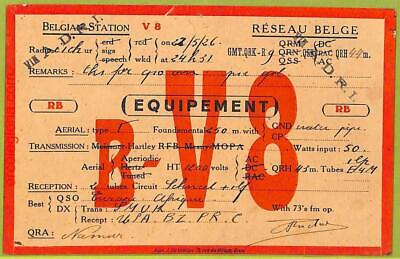 BELGIAN STATION V 8 RÉSEAU BELGE
VIA A.D.R.I.
Radio ur crd sigs speech rcd wkd on 22/5/26 at 24h51 GMT. QRK-R 9 QRM QRN QSS DC RAC QRH 44 m.
VIA A.D.R.I.
REMARKS : Ths for qso om pse qsl
RB (EQUIPEMENT) RB
B-V8
AERIAL: type T Foundemental 50 m. with GND water pipe
TRANSMISSION: Meissner Hartley RFB Mesny MOPA Watts input: 50
Aerial Aperiodic Hertz Tuned HT 1000 volts AC DC RAC QRH 45 m. Tubes
RECEPTION : 2 tubes Circuit Schnell + 1 lf
Best QSO Europe Afrique
DX Trans:
Recept U.P.A. B.Z. P.R. C. With 73's fm op.
QRA: Namur